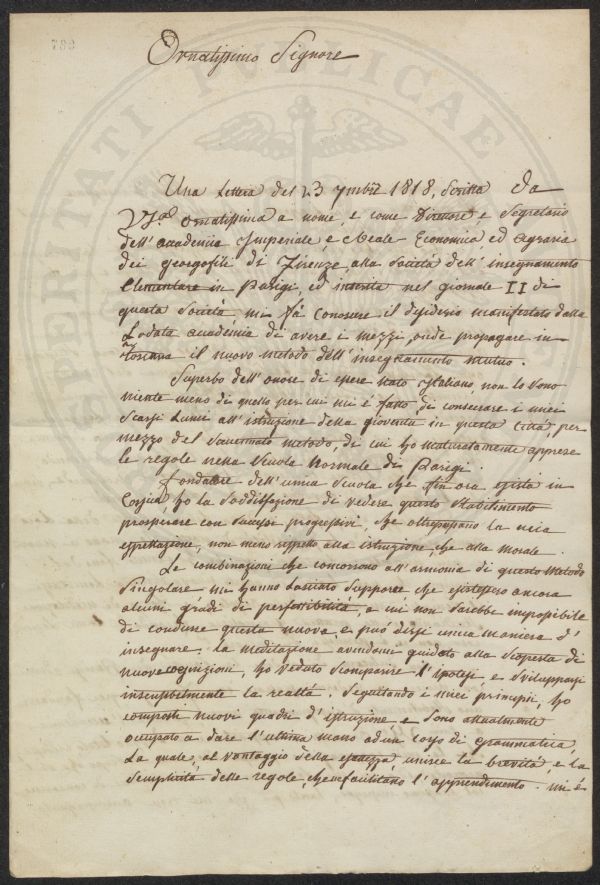 789
Ornatissimo Signore
Una Lettera del 23 9mbre 1818, Scritta da
V.S. ornatissima a nome, e come Direttore e Segretario
dell'accademia Imperiale e Reale Economica, ed Agraria
dei Georgofili di Firenze, alla Società dell'insegnamento
Elementare in Parigi, ed inserita nel giornale II di
questa Società, mi fà conoscere il desiderio manifestato dalla
Lodata accademia di avere i mezzi, onde propagare in
toscana il nuovo metodo dell'insegnamento mutuo.
Superbo dell'onore di essere nato Italiano, non lo sono
niente meno di quello per cui mi é fatto, di consecrare i miei
Scarsi Lumi all'istruzione della gioventù in questa Città, per
mezzo del Sauennato metodo, di cui hò maturatamente apprese
le regole nella Scuola Normale di Parigi.
fondatore dell'unica Scuola che fin ora esiste in
Corsica, hò la Soddisfazione di vedere questo Stabilimento
prosperare con Successi progressivi, che oltrepassano la mia
espettazione, non meno rispetto alla istruzione, che alla morale.
Le combinazioni che concorrono all'armonia di questo Metodo
Singolare mi hanno lasciato Supporre che esistessero ancora
alcuni gradi di perfettibilità, a cui non sarebbe impossibile
di condurre questa nuova, e può dirsi unica maniera d'
insegnare. La meditazione avendomi guidato alla scoperta di
nuove cognizioni, hò veduto Scomparire l'ipotesi e Svilupparsi
insensibilmente la realtà. Seguitando i miei principii, hò
composti nuovi quadri d'istruzione e Sono attualmente
occupato a dare l'ultima mano ad un corso di grammatica,
La quale, al vantaggio della esattezza, unisce la brevità, e la
Semplicità delle regole, che ne facilitano l'apprendimento. mi é
POSTERITATI PVBLICAE